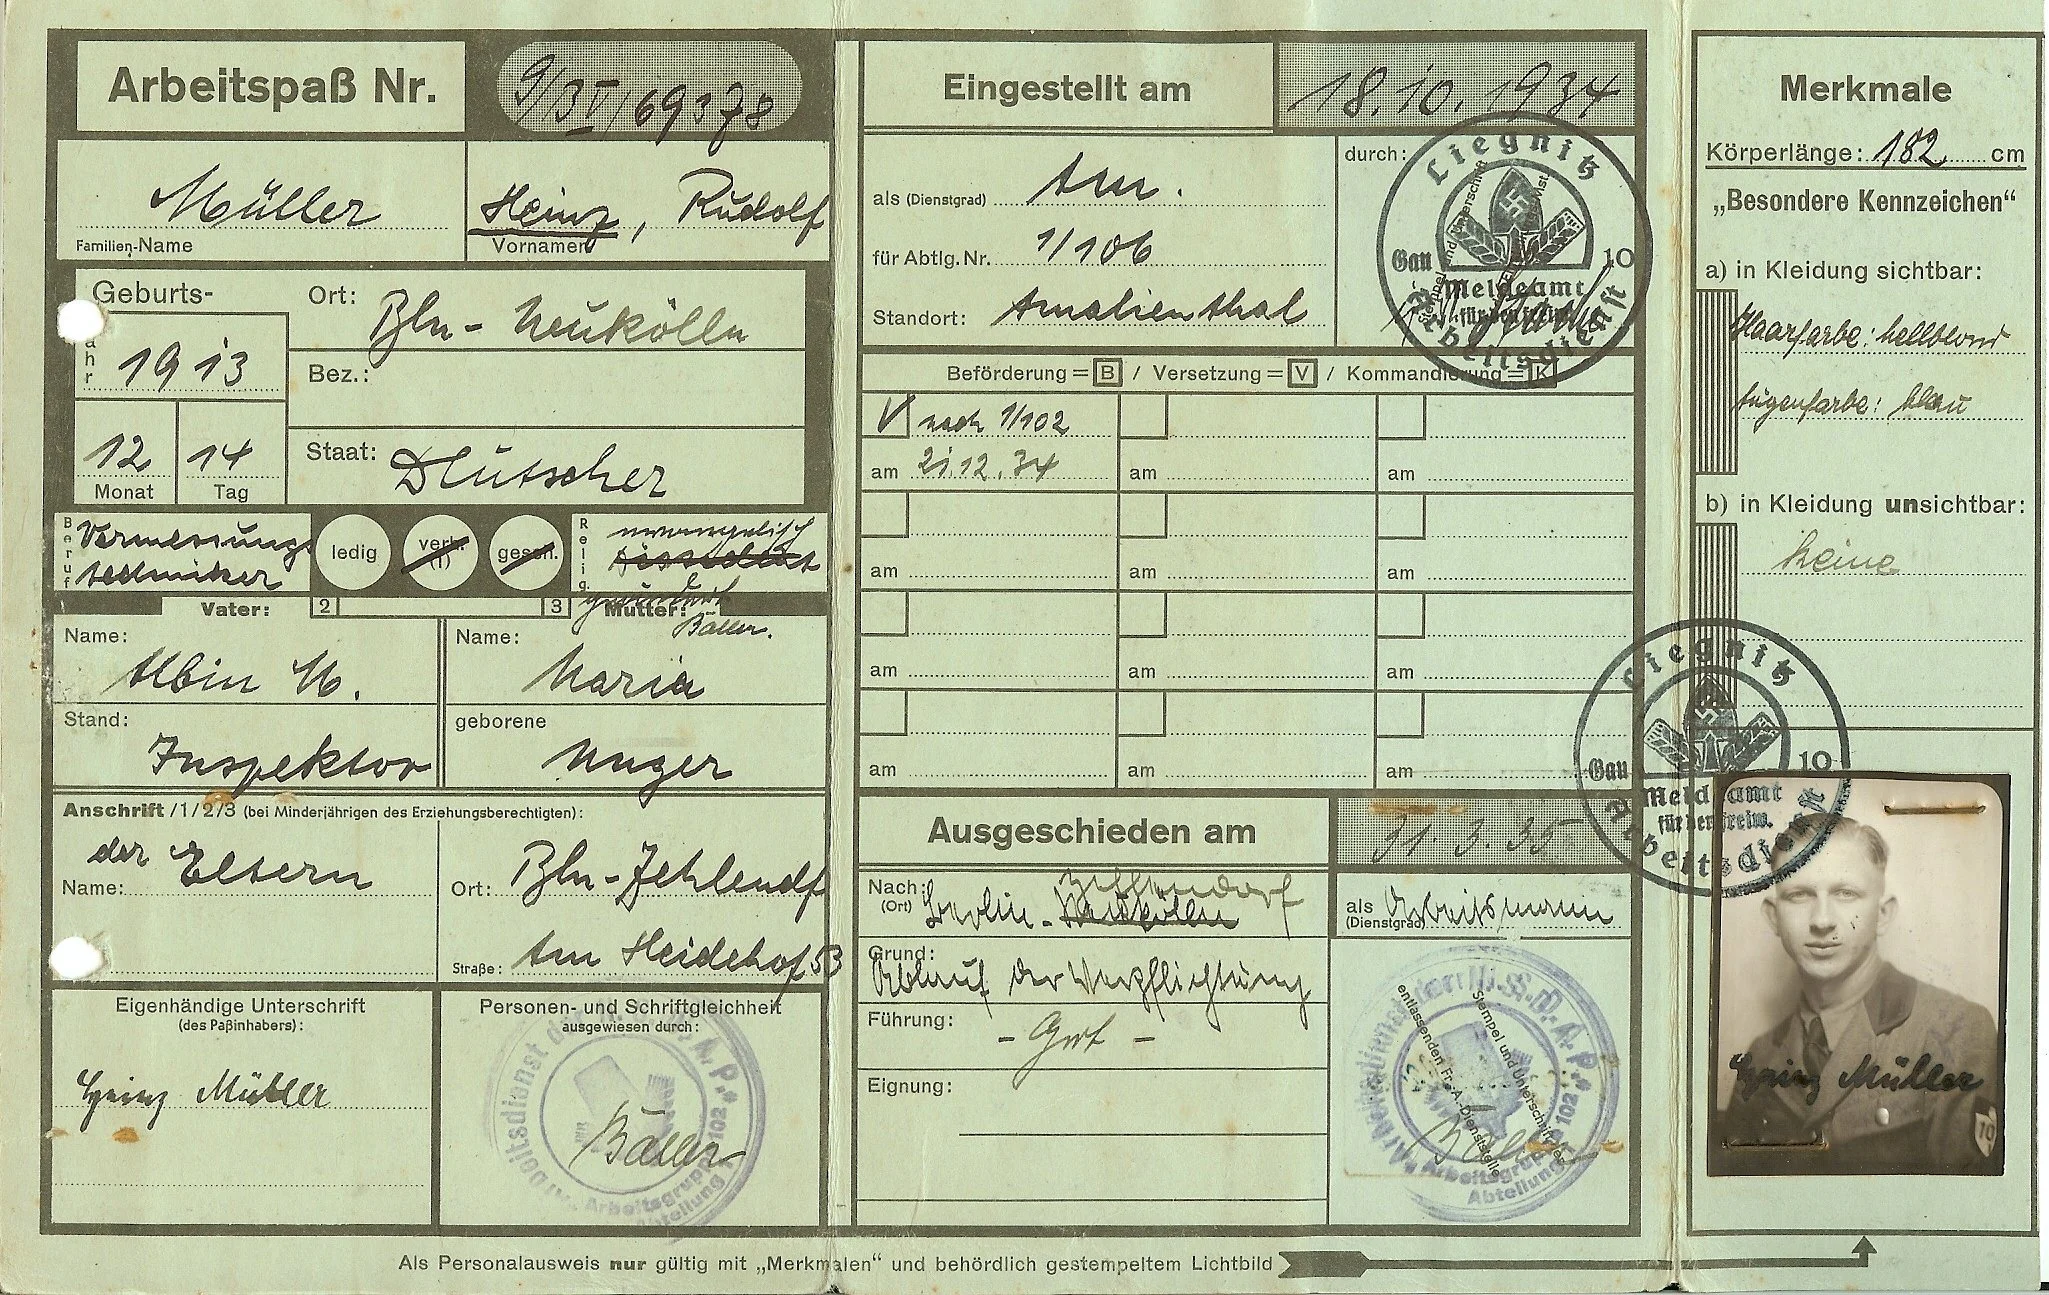 Arbeitspaß Nr.
Müller
Familien-Name
Heinz, Rudolf
Vornamen
Geburts-
Jahr
1913
12
Monat
14
Tag
Ort: Bln-Neukölln
Bez.:
Staat: Deutscher
Beruf
Vermessungs
techniker
ledig
verh.
(1)
gesch.
Relig.
Vater:
2
3
Mutter:
Baller.
Name:
Albin M.
Stand:
Inspektor
Name:
Maria
geborene
Unger
Anschrift /1/2/3 (bei Minderjährigen des Erziehungsberechtigten):
Name: der Eltern
Ort: Bln-Zehlendf
Straße: Am Heidehof 53
Eigenhändige Unterschrift
(des Paßinhabers):
Heinz Müller
Personen- und Schriftgleichheit
ausgewiesen durch:
Baller
Eingestellt am
18.10.1934
als (Dienstgrad) Am.
für Abtlg. Nr. 1/106
Standort: Amalienthal
durch:
Liegnitz
Gau 10
Meldeamt
für den freiw.
Arbeitsdienst
Beförderung = B / Versetzung = V / Kommandierung = K
V nach 1/102
am 21.12.34
am
am
am
am
am
am
am
am
am
am
am
Ausgeschieden am
31.3.35
Nach:
(Ort)
Berlin-Neukölln
Zehlendorf
als
(Dienstgrad)
Arbeitsmann
Grund:
Ablauf der Verpflichtung
Führung:
- Gut -
Eignung:
Stempel und Unterschrift der
entlassenden Fr.-A.-Dienststelle
Arbeitsgruppe 102
Abteilung
Baller
Merkmale
Körperlänge: 182 cm
„Besondere Kennzeichen“
a) in Kleidung sichtbar:
Haarfarbe: hellblond
Augenfarbe: blau
b) in Kleidung unsichtbar:
keine
Liegnitz
Gau 10
Meldeamt
für den freiw.
Arbeitsdienst
Heinz Müller
10
Als Personalausweis nur gültig mit „Merkmalen“ und behördlich gestempeltem Lichtbild